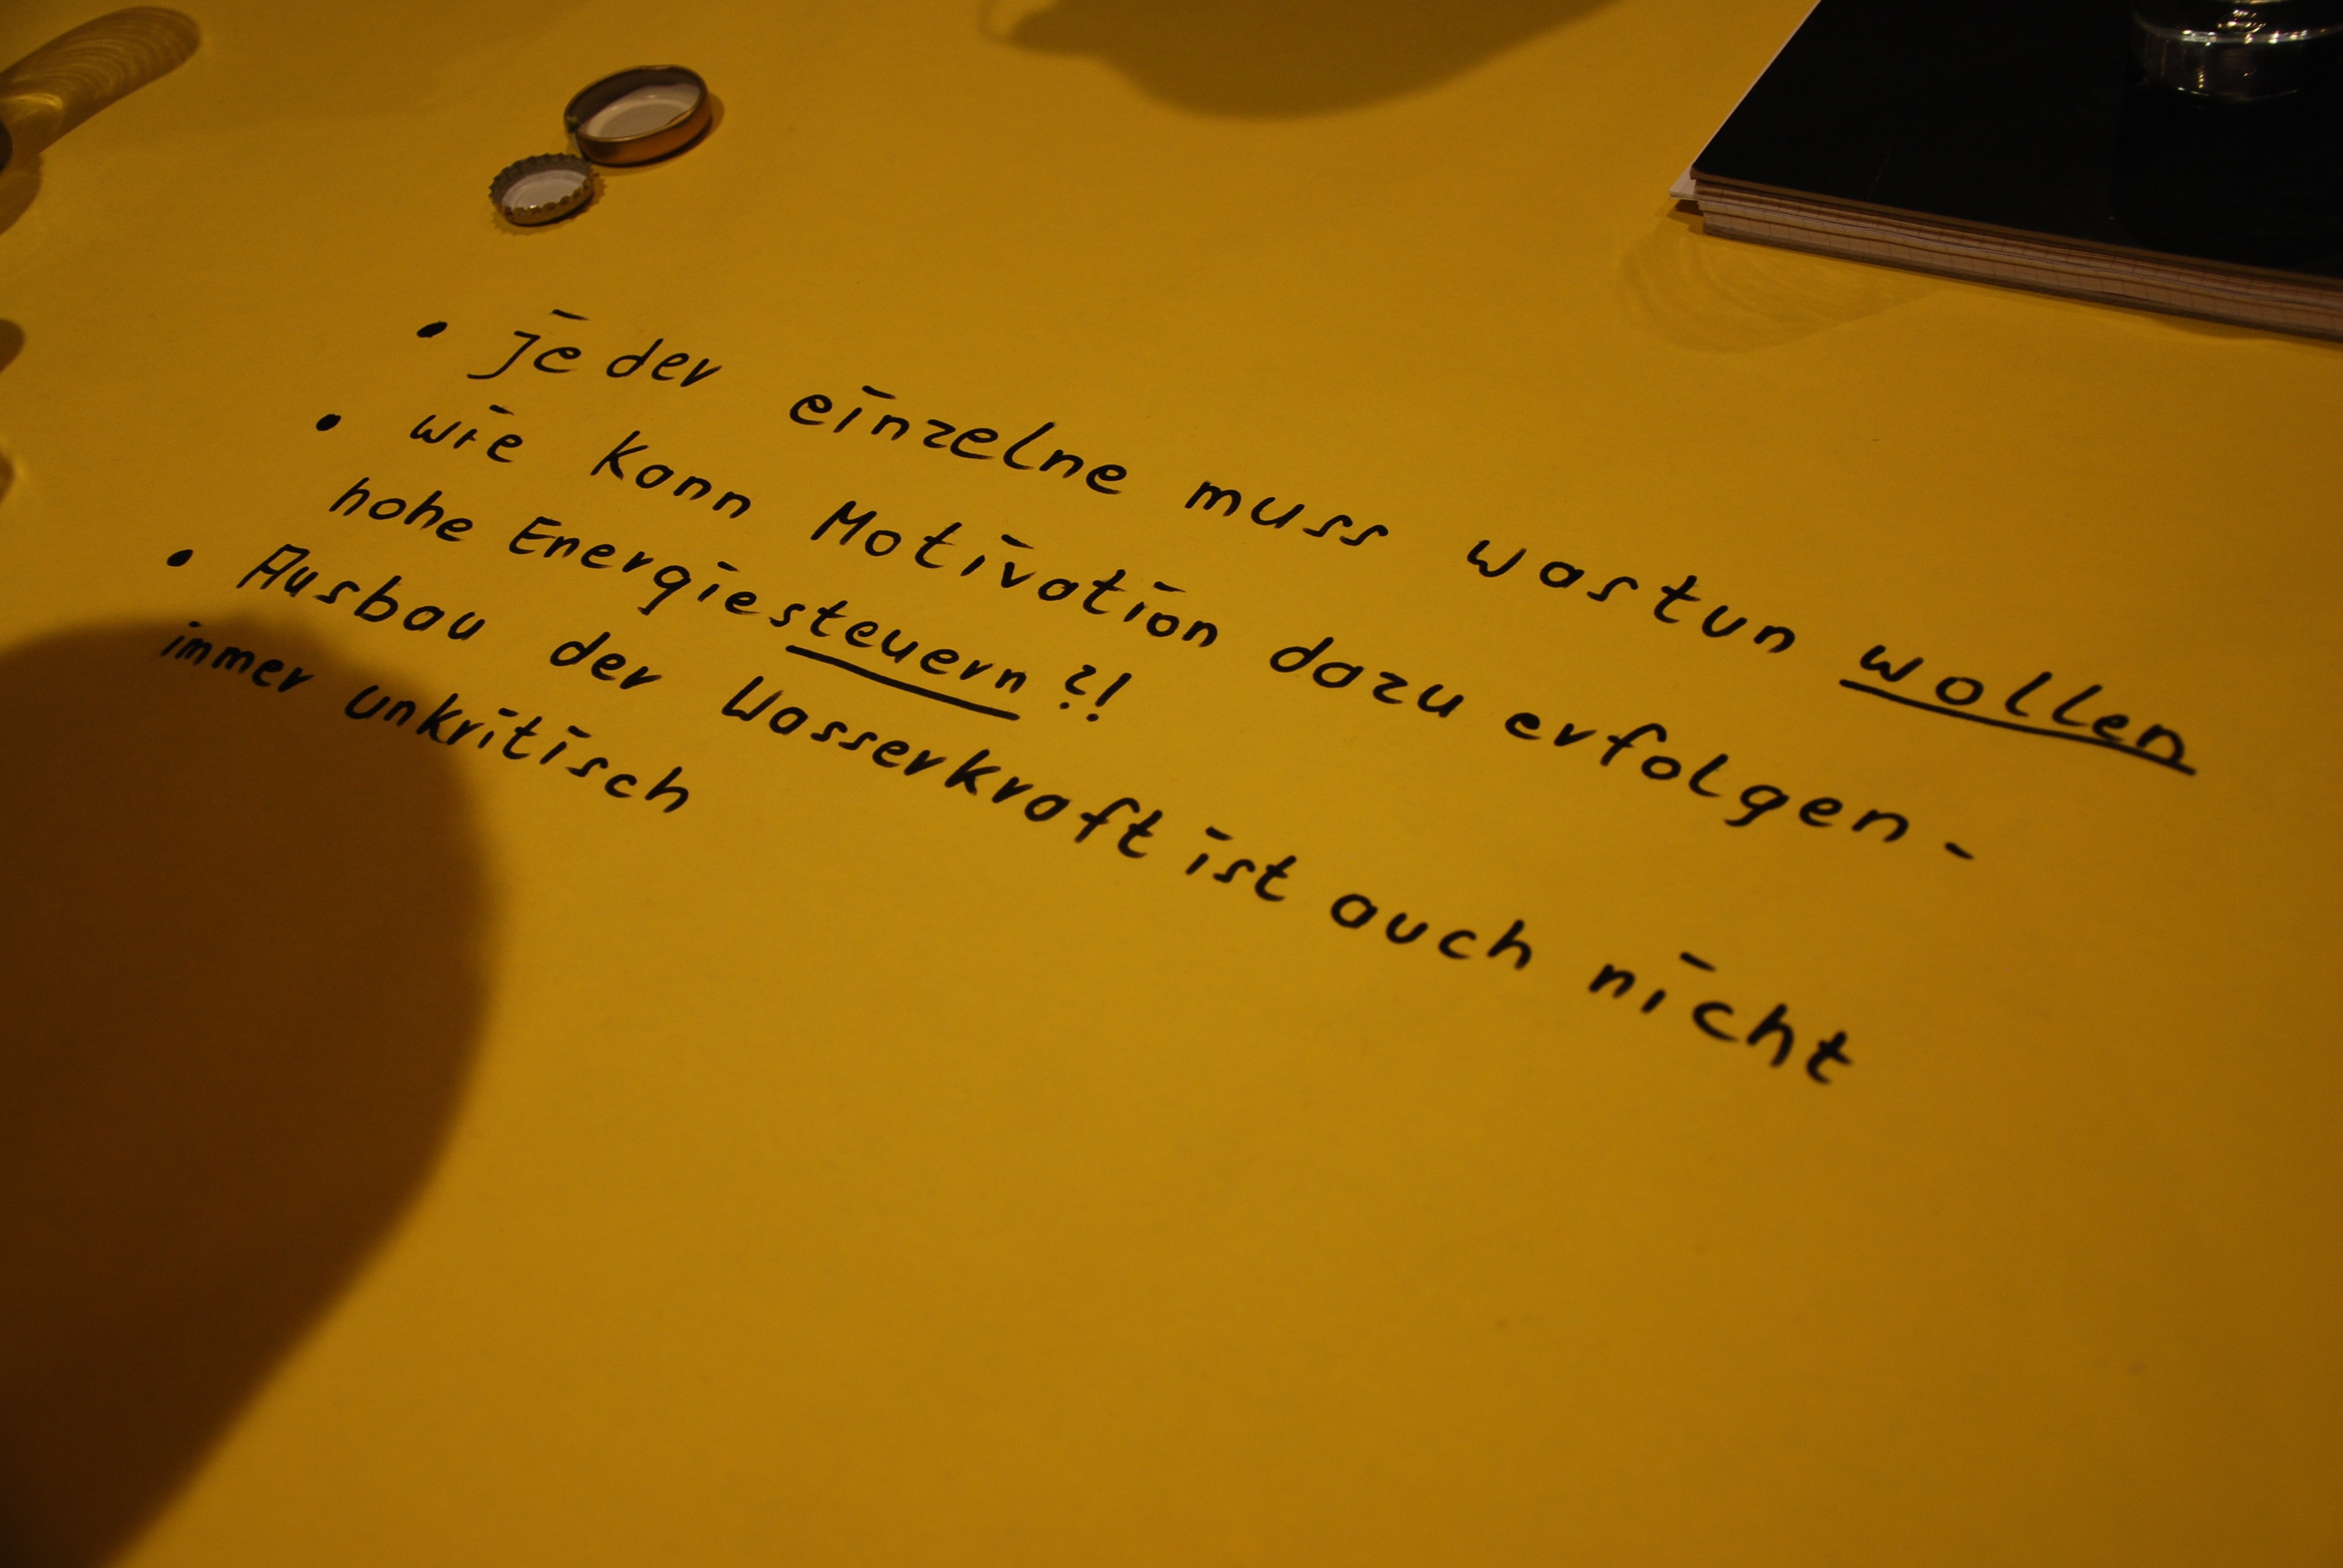 • Jeder einzelne muss was tun wollen
• wie kann Motivation dazu erfolgen -
hohe Energiesteuern ?!
• Ausbau der Wasserkraft ist auch nicht
immer unkritisch